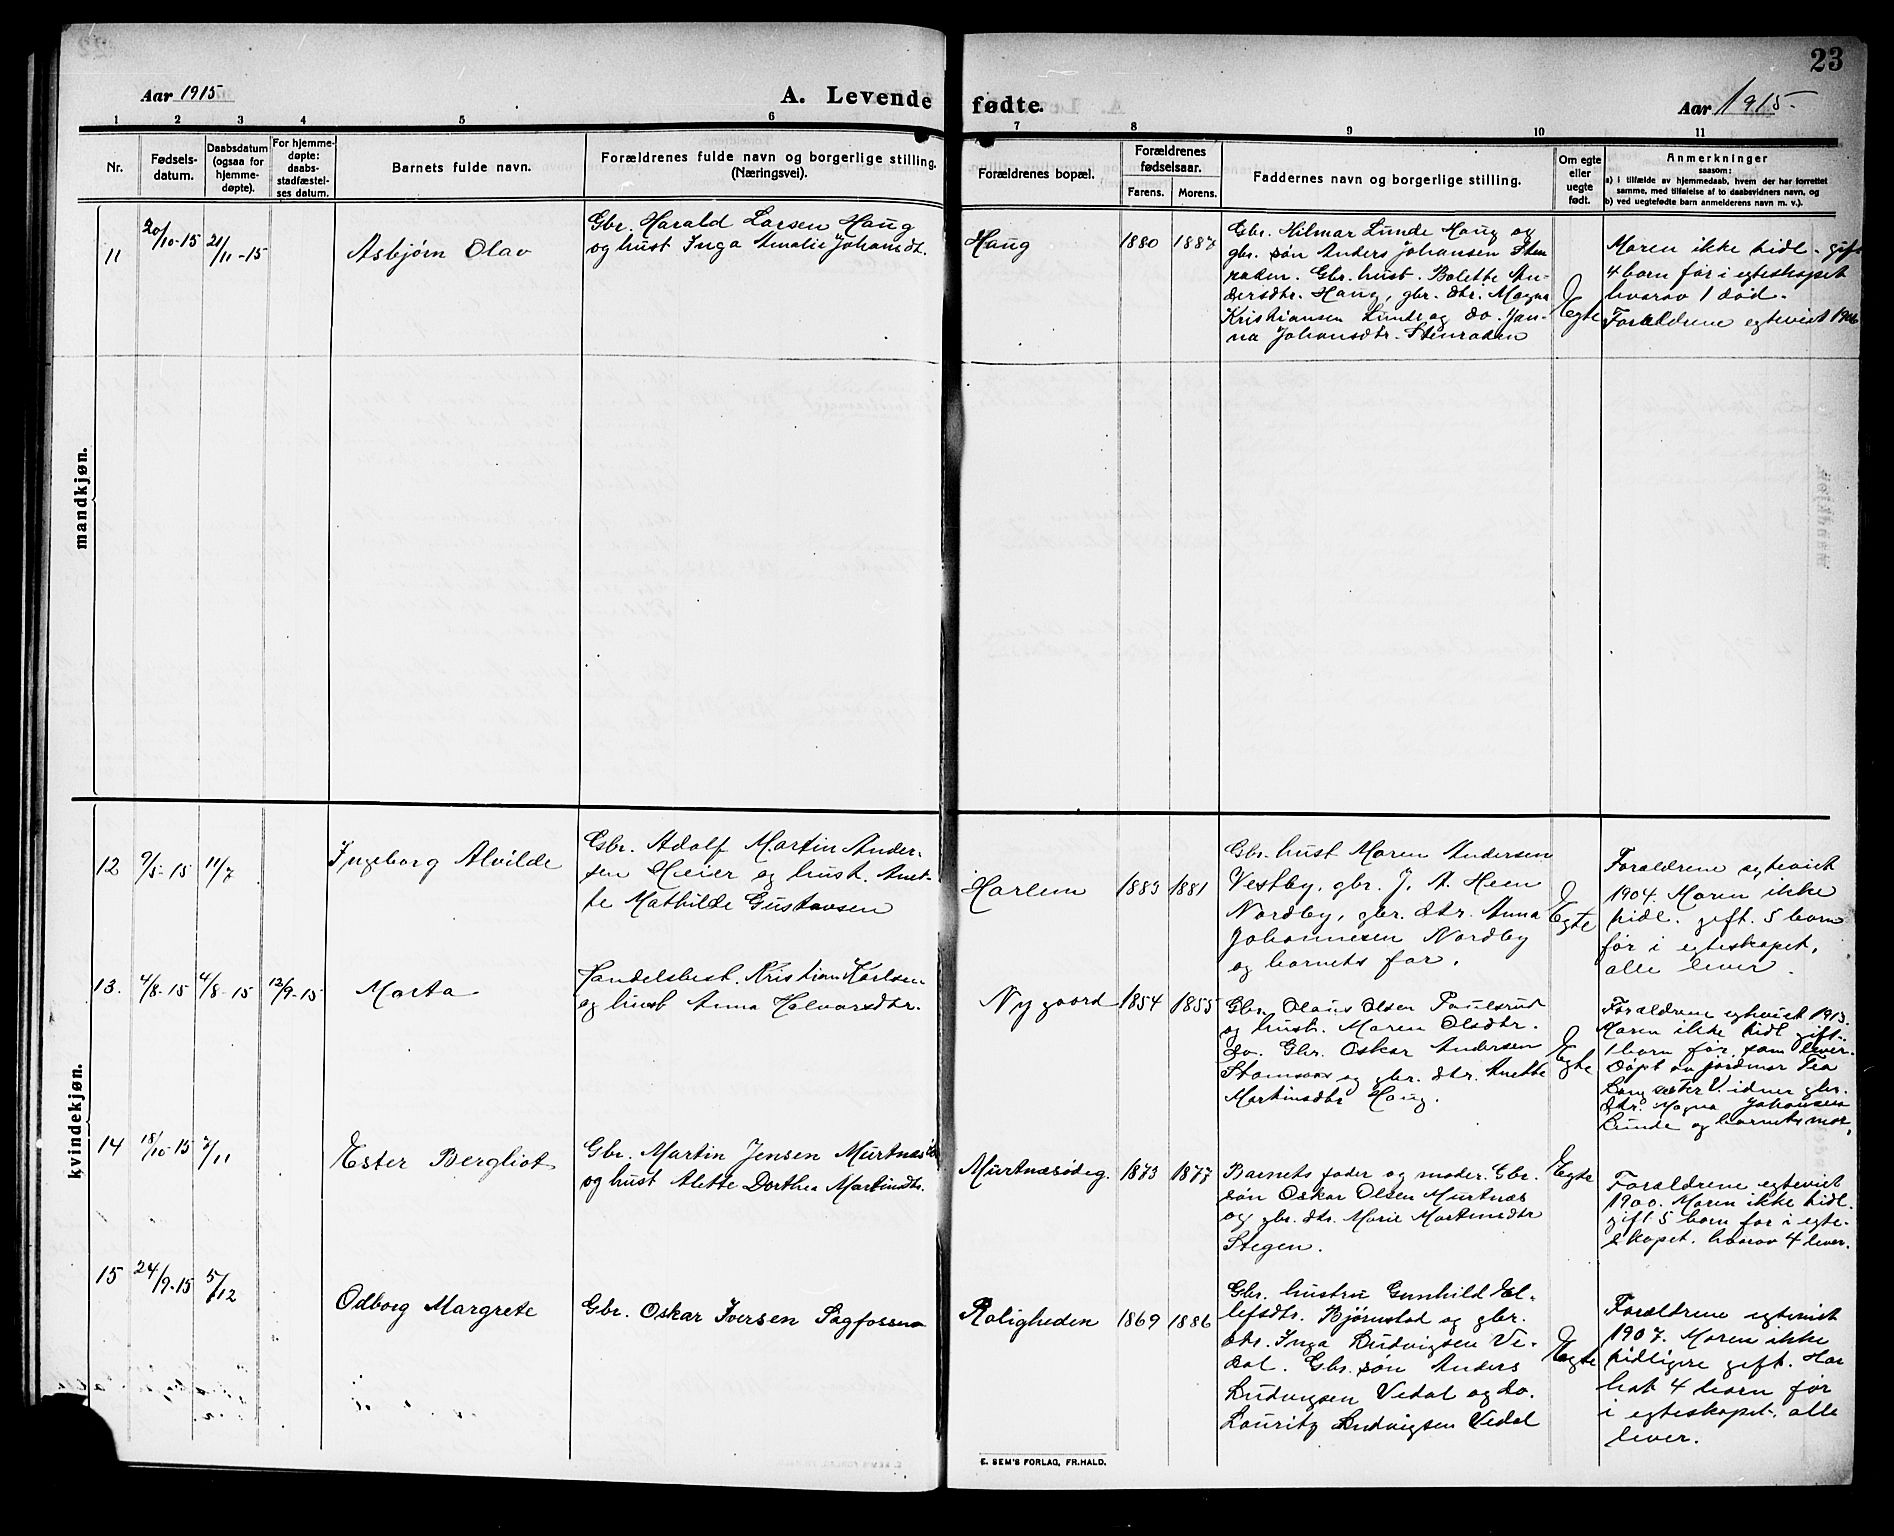 23
Aar 1915
A. Levende fødte.
Aar 1915.
1 2 3 4 5 6 7 8 9 10 11
Nr.
Fødsels-
datum.
Daabsdatum
(ogsaa for
hjemme-
døpte).
For hjemme-
døpte:
daabs-
stadfæstel-
ses datum.
Barnets fulde navn.
Forældrenes fulde navn og borgerlige stilling.
(Næringsvei).
Forældrenes bopæl.
Forældrenes
fødselsaar.
Farens.
Morens.
Faddernes navn og borgerlige stilling.
Om egte
eller
uegte
født.
Anmerkninger
saasom:
a) i tilfælde av hjemmedaab, hvem der har forrettet
samme, med tilføielse af to daabsvidners navn, og
b) ved uegtefødte barn anmelderens navn m. v.).
mandkjøn.
11
20/10-15
21/11-15
Asbjørn Olav
Gbr. Harald Larsen Haug
og hust Inga Amalie Johansdt.
Haug
1880
1887
Gbr. Hilmar Lunde Haug og
gbr. søn Anders Johansen Sten
raden. Gbr. hust. Bolette An-
dersdtr. Haug, gbr. dtr. Magna
Kristiansen Lunde og do. Jan-
na Johansdtr. Stenraden
Egte
Moren ikke tidl. gift
4 born før i egteskapet
hvorav 1 død.
Forældrene egteviet 1906
kvindekjøn.
12
9/5-15
11/7
Ingeborg Alvilde
Gbr. Adolf Martin Ander-
sen Heier og hust. Anet-
te Mathilde Gustavsen
Harlem
1883
1881
Gbr. hust Maren Andersen
Vestby, gbr. J. A. Heen
Nordby, gbr. dtr. Anna
Johannesen Nordby
og barnets far.
Egte
Forældrene egteviet
1904. Moren ikke
tidl. gift. 5 born
før i egteskapet,
alle lever.
13.
4/8-15
4/8-15
12/9-15
Marta
Handelsbest. Kristian Karlsen
og hust Anna Halvorsdtr.
Nygaard
1854
1855
Gbr. Olaus Olsen Paulsrud
og hust. Maren Olsdtr.
do. Gbr. Oskar Andersen
og gbr. dtr. Anette
Martinsdtr Haug.
Egte
Forældrene egteviet 1913.
Moren ikke tidl gift.
1 born før, som lever.
Døpt av jordmor Tea
Langsæter Vidner gbr.
dtr. Magna Johansen
Lunde og barnets mor.
14
18/10-15
7/11
Ester Bergliot
Gbr. Martin Jensen Murtnæs
og hust Alette Dorthea Martinsdtr.
Murtnæsødeg.
1873
1877
Barnets fader og moder. Gbr.
søn Oskar Olsen Murtnæs
og gbr. dtr. Marie Martinsdtr
Stegen.
Egte
Forældrene egteviet
1900. Moren ikke tidl.
gift 5 born før i egte-
skapet. hvorav 4 lever.
15
24/9-15
5/12
Odborg Margrete
Gbr. Oskar Iversen Sagfossen
Roligheden
1869
1886
Gbr. hustru Gunhild El-
lefsdtr. Bjørnstad og gbr.
dtr. Inga Ludvigsen Ve-
dal. Gbr. søn Anders
Ludvigsen Vedal og do.
Lauritz Ludvigsen Vedal
Egte
Forældrene egteviet
1907. Moren ikke
tidligere gift. Har
hat 4 born før
i egteskapet, alle
lever.
E. SEM'S FORLAG, FR.HALD.